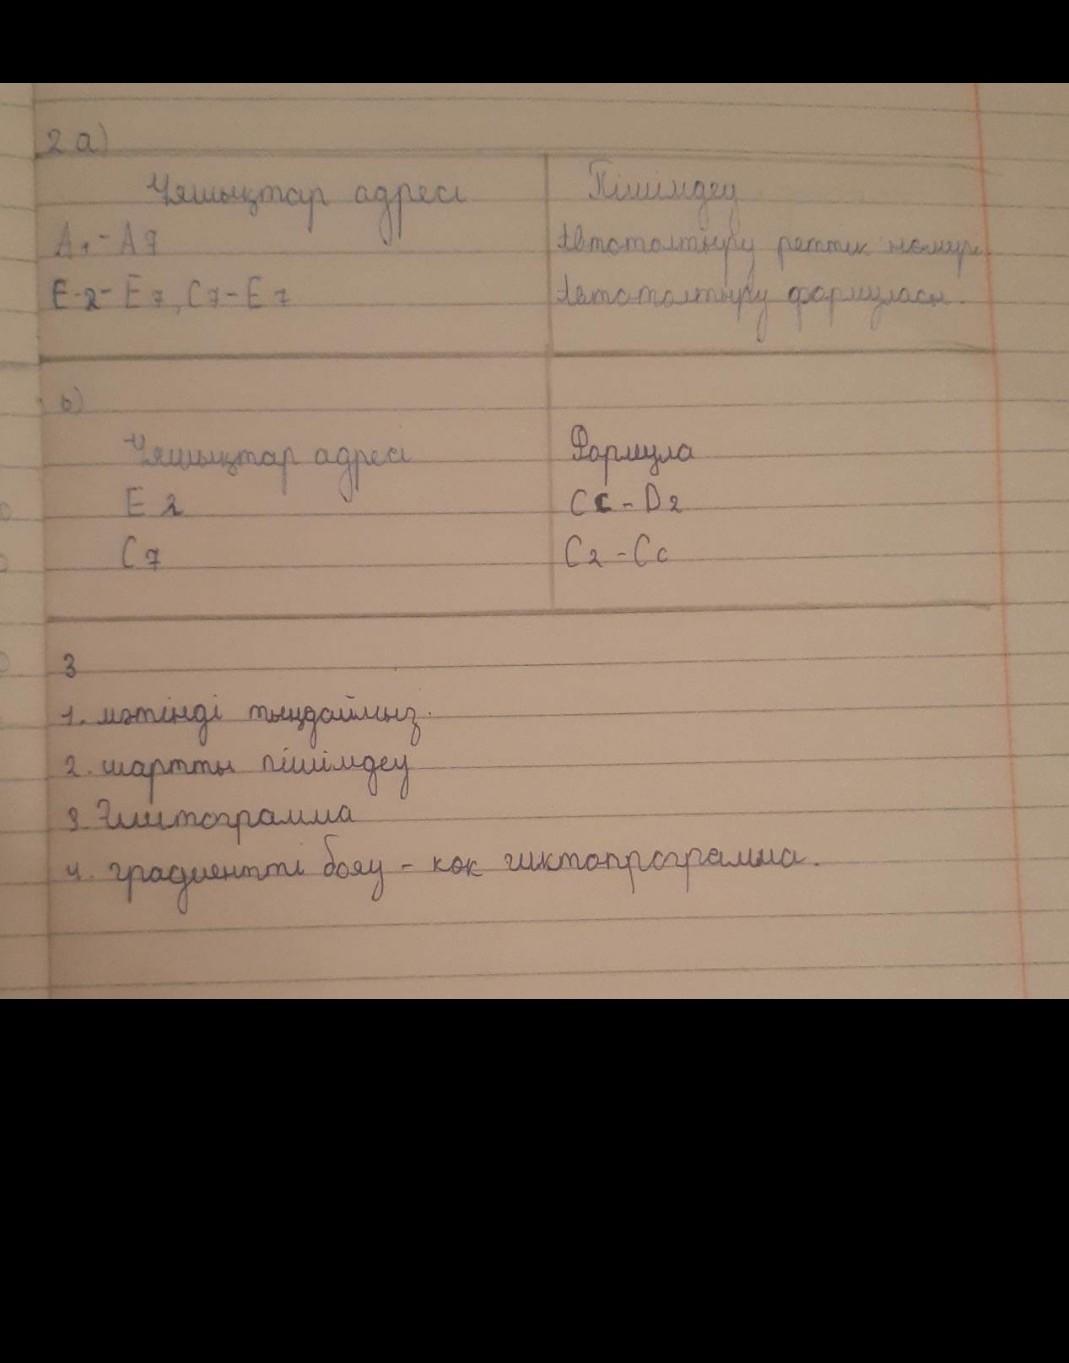 2 а)
Ұяшықтар адресі Пішімдеу
А1-А7 Автотолтыру реттік номері
Е-2-Е7, С7-Е7 Автотолтыру формуласы.
b)
Ұяшықтар адресі Формула
Е2 СС-D2
С7 С2-Сс
3
1. мәтінді тыңдаймыз.
2. шартты пішімдеу
3. Гистограмма
4. градиентті бояу - көк гиктопрограмма.